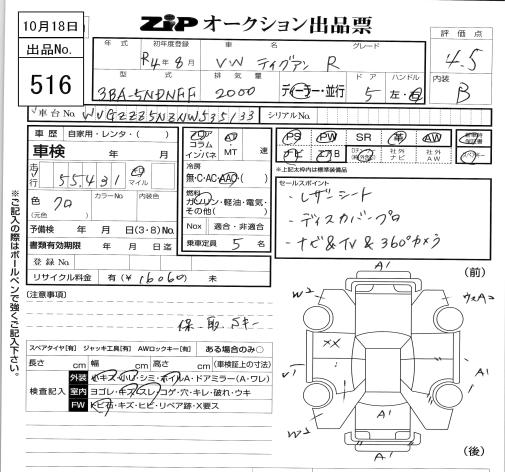 10月18日
ZIP オークション出品票
出品No.
516
年式 初年度登録 車名 グレード
R4年8月 VW ティグアン R
評価点
4.5
型式 排気量 ドア ハンドル
3BA-5NDNFF 2000 ディーラー・並行 5 左・右
内装
B
車台No. WVGZZZ5NZNW535133 シリアルNo.
車歴 自家用・レンタ・( )
車検 年 月
走行 55,431 km マイル
色 クロ カラーNo. 内装色
(元色)
予備検 年 月 日(3・8)
書類有効期限 年 月 日迄
登録No.
リサイクル料金 有(¥16060) 未
フロア コラム インパネ AT・MT 速
冷房
無・C・AC・AAC・( )
燃料
ガソリン・軽油・電気・その他( )
Nox 適合・非適合
乗車定員 5 名
PS PW SR 革 AW
ナビ エアB 社外ナビ 社外AW
※上記太枠内は標準装備品
セールスポイント
・レザーシート
・ディスカバープロ
・ナビ&TV&360°カメラ
(注意事項)
保-取 Sキー
スペアタイヤ[有] ジャッキ工具[有] AWロックキー[有] ある場合のみ○
長さ cm 幅 cm 高さ cm (車検証上の寸法)
検査記入
外装 小キズ・小U・シミ・ホイルA・ドアミラー(A・ワレ)
室内 ヨゴレ・キズ・スレ・コゲ・穴・キレ・破れ・ウキ
FW トビ石・キズ・ヒビ・リペア跡・X要ス
※ご記入の際はボールペンで強くご記入下さい。
(前)
A1
W2
XX
A1
W2
A1
A1
(後)